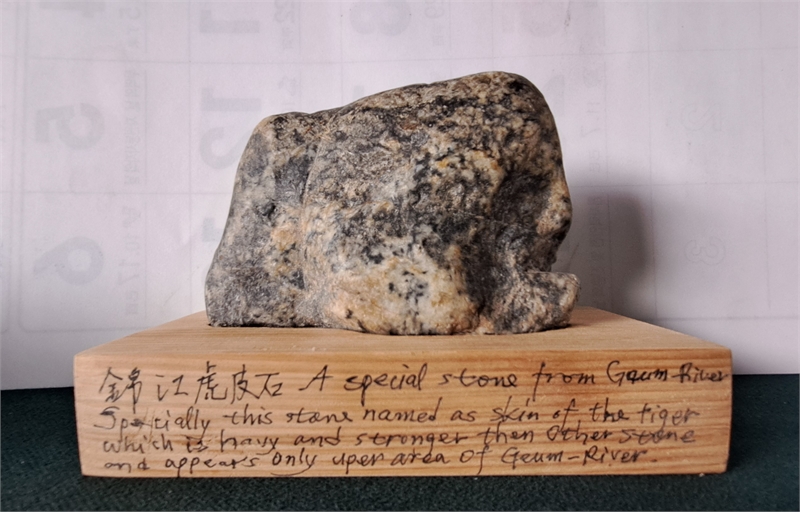 錦江虎皮石 A special stone from Geum-River
Specially this stone named as skin of the tiger
which is havy and stronger then other stone
and appears only uper area of Geum-River.